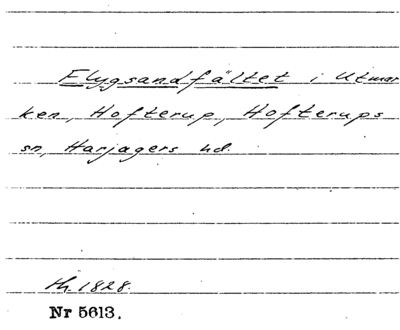 Flygsandfältet i Utmar
ken, Hofterup, Hofterups
sn, Harjagers hd.
th. 1828.
Nr 5613.